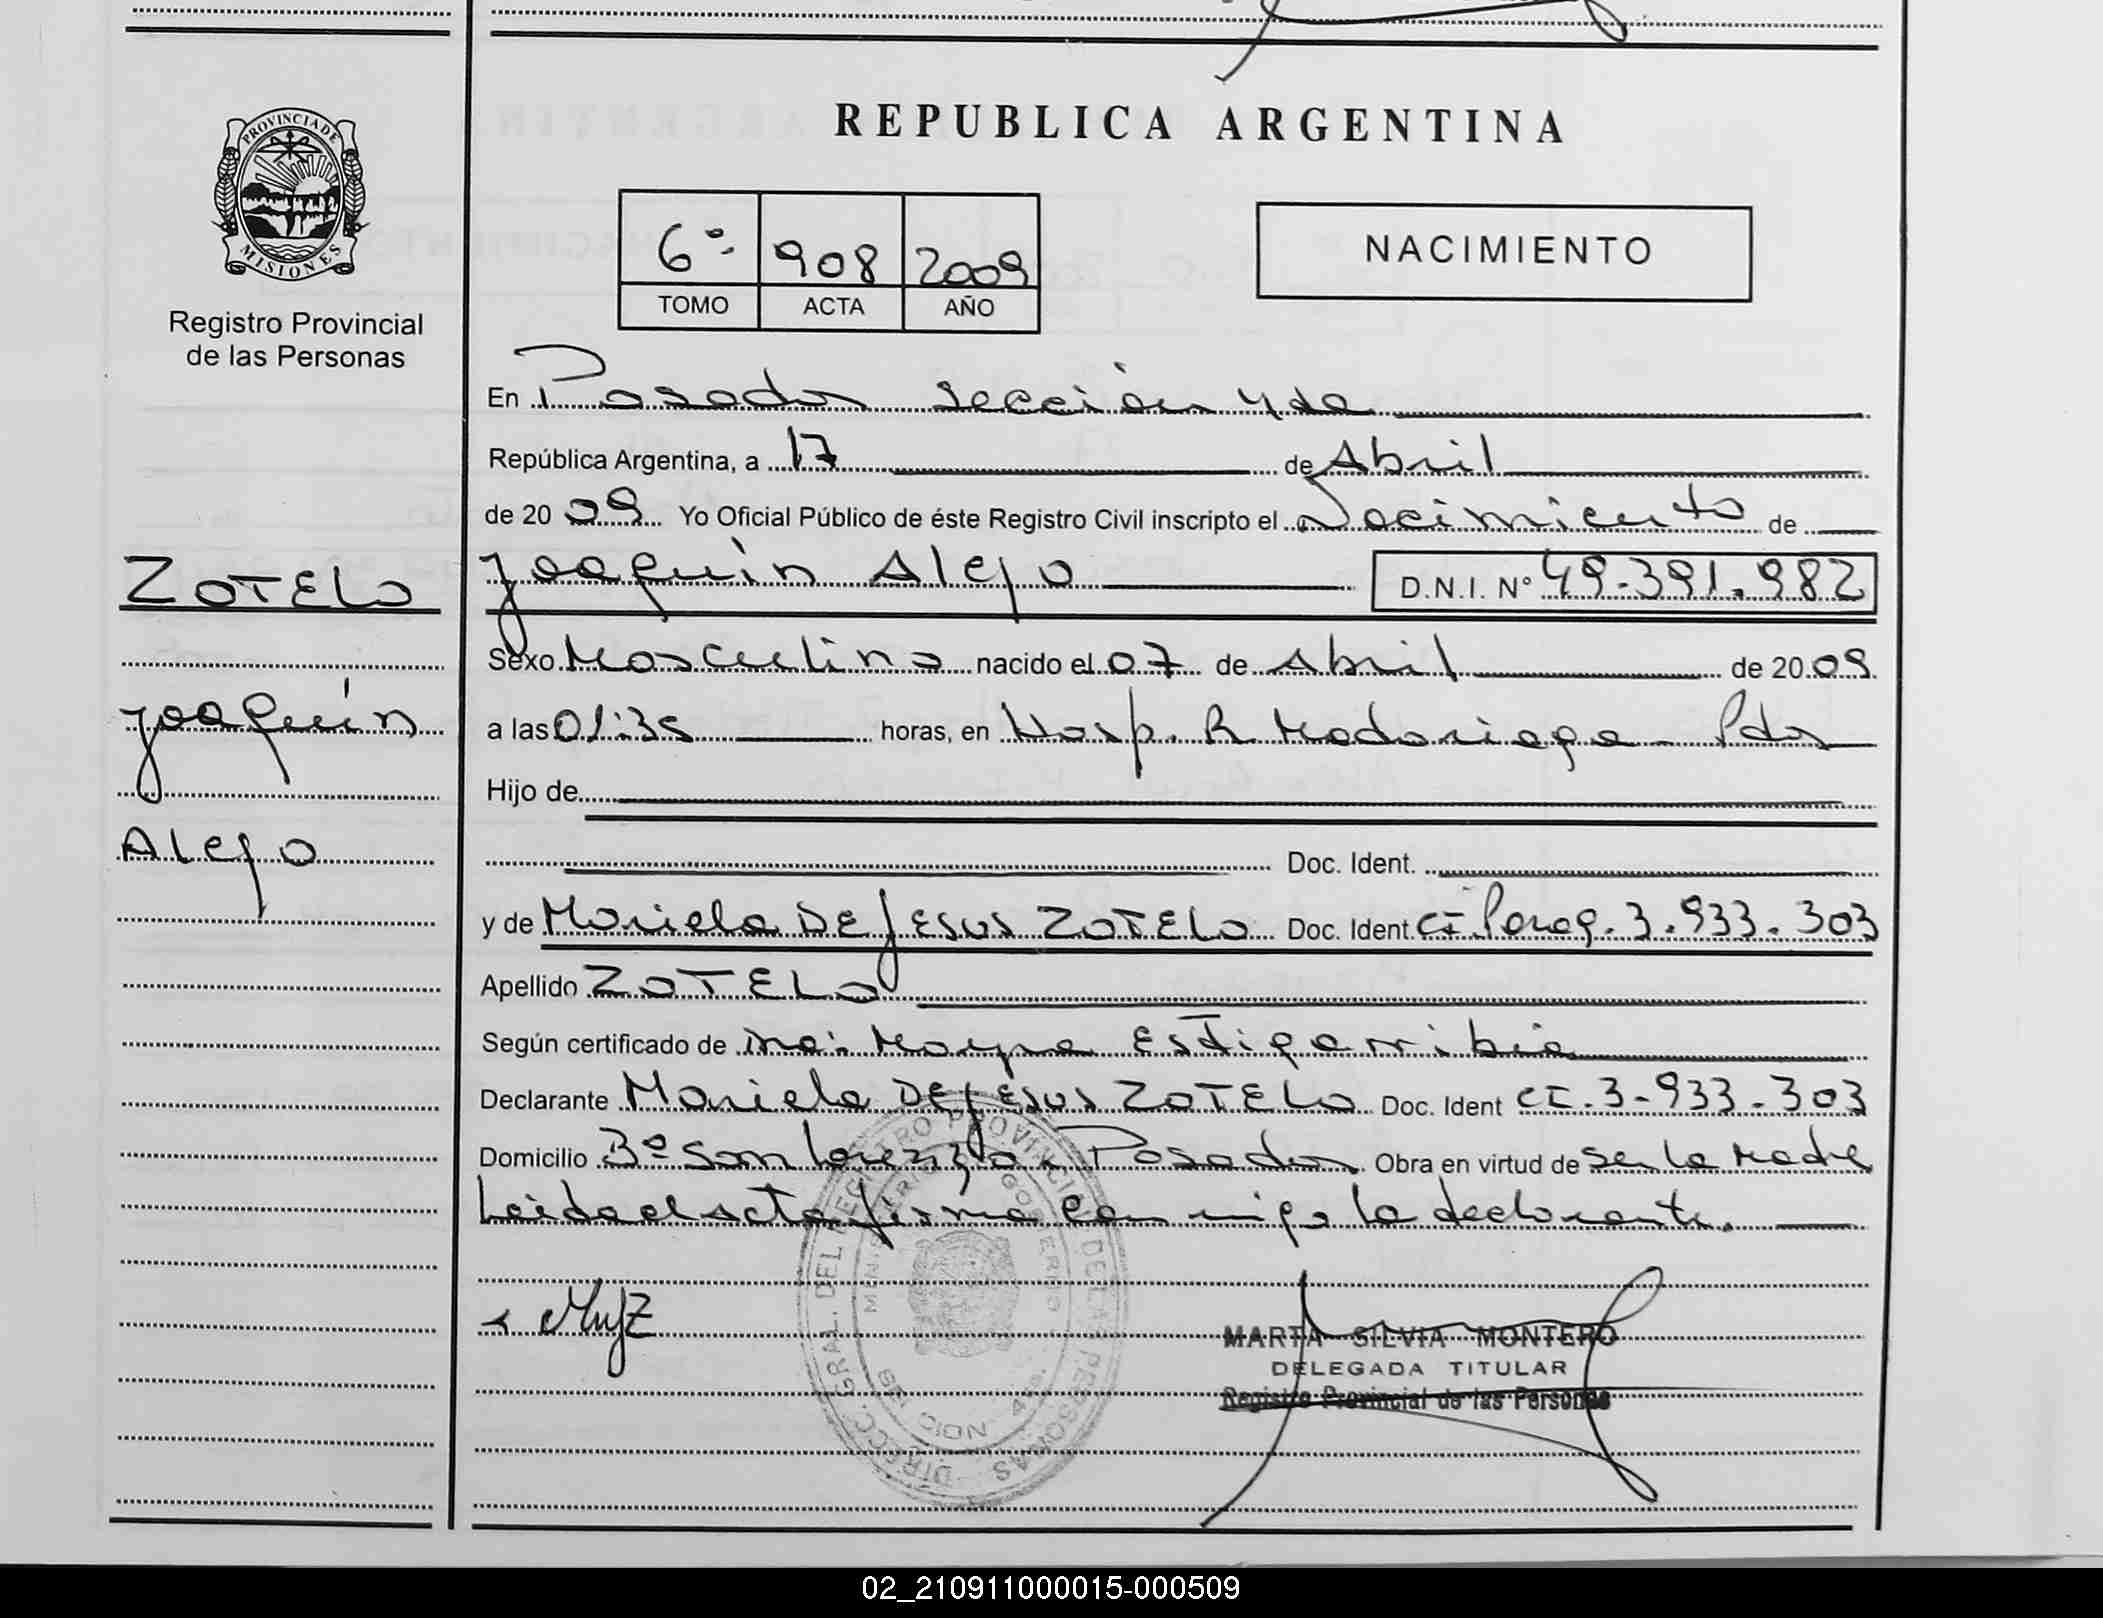 REPUBLICA ARGENTINA
PROVINCIA DE MISIONES
Registro Provincial
de las Personas
6º 908 2009
TOMO ACTA AÑO
NACIMIENTO
En Posadas sección 4ta
República Argentina, a 17 de Abril
de 2009 Yo Oficial Público de éste Registro Civil inscripto el Nacimiento de
ZOTELO
Joaquín
Alejo
Joaquín Alejo D.N.I. Nº 49.391.982
Sexo Masculino nacido el 07 de Abril de 2009
a las 01:35 horas, en Hosp. R Madariaga - Pdas
Hijo de
Doc. Ident.
y de Mariela DE JESUS ZOTELO Doc. Ident. CI. Parag. 3.933.303
Apellido ZOTELO
Según certificado de Estigarribia
Declarante Mariela DE JESUS ZOTELO Doc. Ident CI. 3.933.303
Domicilio Bº San Lorenzo - Posadas Obra en virtud de ser la madre
Leida el acta firma con migo la declarante.
DIRECC. GRAL. DEL REGISTRO PROVINCIAL DE LAS PERSONAS
MARTA SILVIA MONTERO
DELEGADA TITULAR
Registro Provincial de las Personas
02_210911000015-000509